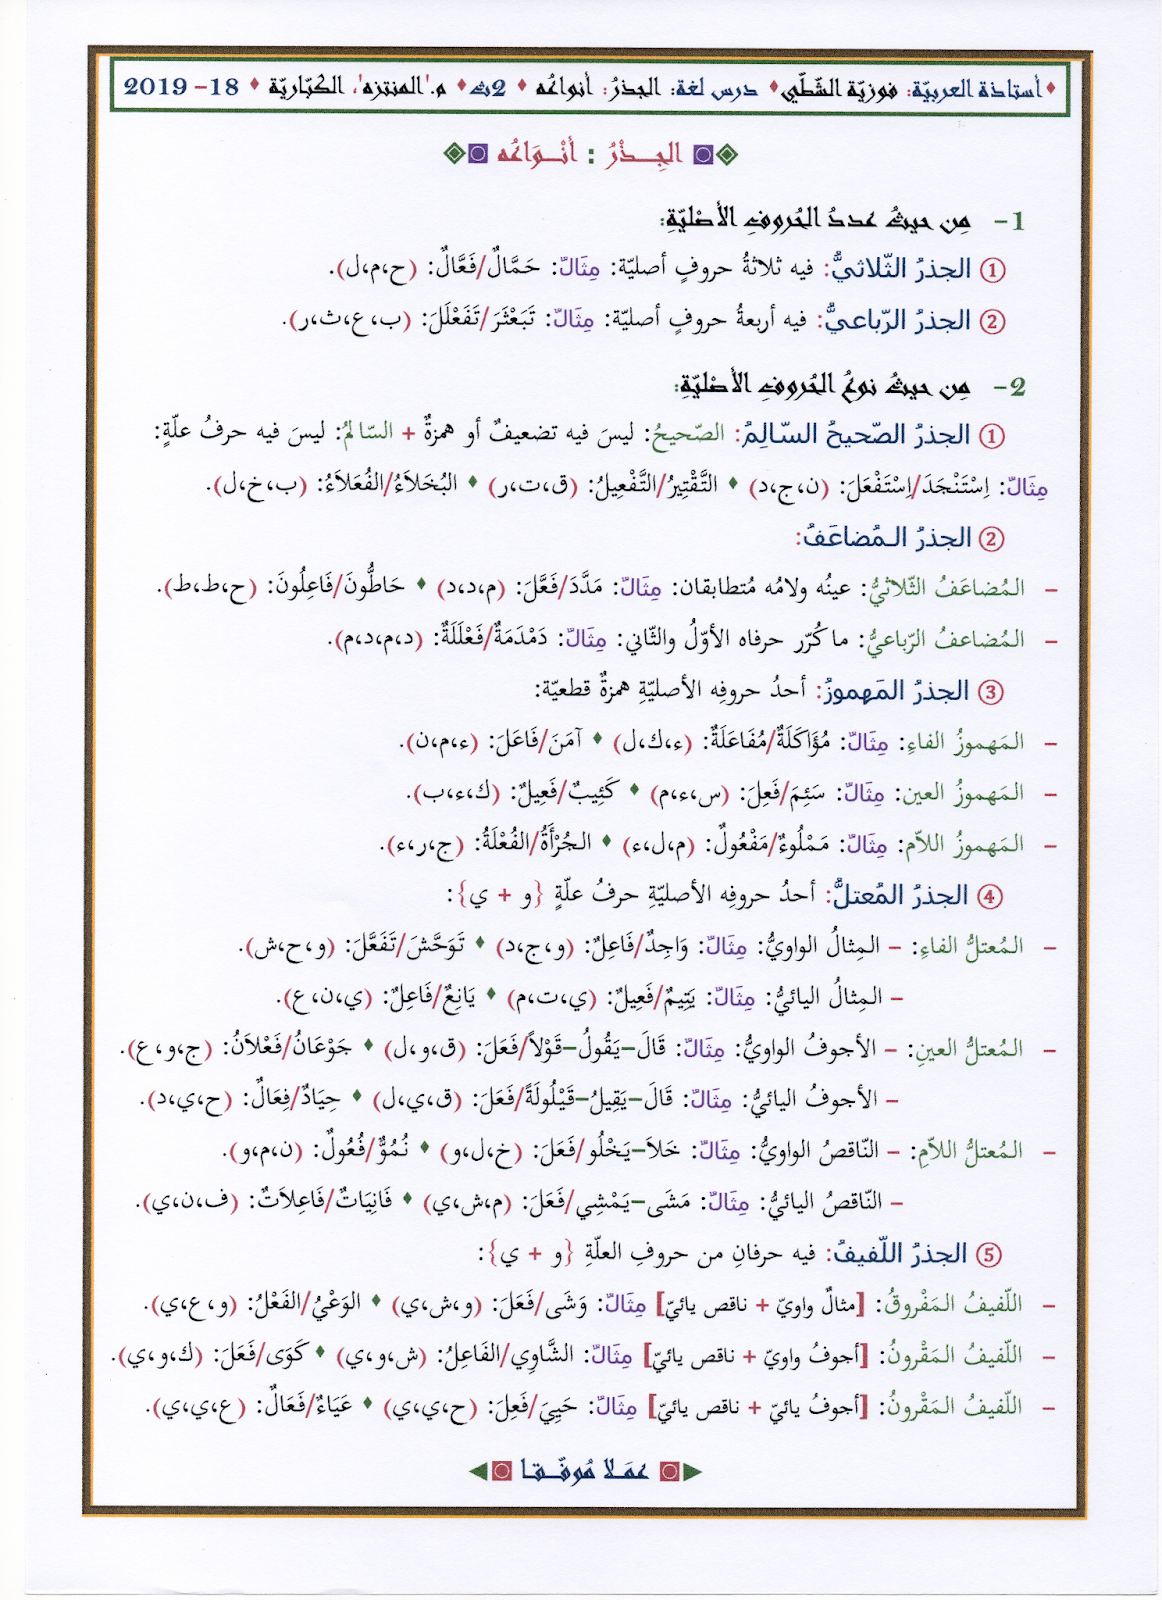 ♦أستاذة العربيّة: فوزيّة الشّطّي♦ درس لغة: الجذرُ: أنواعُه ♦ 2ث♦ م.'المنتزه'، الكبّاريّة ♦ 18-2019
الجِــذْرُ : أنْــوَاعُه
1- مِن حيثُ عددُ الحُروفِ الأصْليّةِ:
① الجذرُ الثّلاثيُّ: فيه ثلاثةُ حروفٍ أصليّة: مِثَالٌ: حَمَّالٌ/فَعَّالٌ: (ح،م،ل).
② الجذرُ الرّباعيُّ: فيه أربعةُ حروفٍ أصليّة: مِثَالٌ: تَبَعْثَرَ/تَفَعْلَلَ: (ب،ع،ث،ر).
2- مِن حيثُ نوعُ الحُروفِ الأصْليّةِ:
① الجذرُ الصّحيحُ السّالِمُ: الصّحيحُ: ليسَ فيه تضعيفٌ أو همزةٌ + السّالمُ: ليسَ فيه حرفُ علّةٍ:
مِثَالٌ: اِسْتَنْجَدَ/اِسْتَفْعَلَ: (ن،ج،د) ♦ التَّقْتِيرُ/التَّفْعِيلُ: (ق،ت،ر) ♦ البُخَلاَءُ/الفُعَلاَءُ: (ب،خ،ل).
② الجذرُ الـمُضاعَفُ:
– الـمُضاعَفُ الثّلاثيُّ: عينُه ولامُه مُتطابقان: مِثَالٌ: مَدَّدَ/فَعَّلَ: (م،د،د) ♦ حَاطُّونَ/فَاعِلُونَ: (ح،ط،ط).
– الـمُضاعفُ الرّباعيُّ: ما كُرّر حرفاه الأوّلُ والثّاني: مِثَالٌ: دَمْدَمَةٌ/فَعْلَلَةٌ: (د،م،د،م).
③ الجذرُ المَهموزُ: أحدُ حروفِه الأصليّةِ همزةٌ قطعيّة:
– الـمَهموزُ الفاءِ: مِثَالٌ: مُؤَاكَلَةٌ/مُفَاعَلَةٌ: (ء،ك،ل) ♦ آمَنَ/فَاعَلَ: (ء،م،ن).
– الـمَهموزُ العين: مِثَالٌ: سَئِمَ/فَعِلَ: (س،ء،م) ♦ كَئِيبٌ/فَعِيلٌ: (ك،ء،ب).
– الـمَهموزُ اللاّم: مِثَالٌ: مَمْلُوءٌ/مَفْعُولٌ: (م،ل،ء) ♦ الـجُرْأَةُ/الفُعْلَةُ: (ج،ر،ء).
④ الجذرُ المُعتلُّ: أحدُ حروفِه الأصليّةِ حرفُ علّةٍ {و + ي}:
– الـمُعتلُّ الفاءِ: – الـمِثالُ الواويُّ: مِثَالٌ: وَاجِدٌ/فَاعِلٌ: (و،ج،د) ♦ تَوَحَّشَ/تَفَعَّلَ: (و،ح،ش).
– الـمِثالُ اليائيُّ: مِثَالٌ: يَتِيمٌ/فَعِيلٌ: (ي،ت،م) ♦ يَانِعٌ/فَاعِلٌ: (ي،ن،ع).
– الـمُعتلُّ العينِ: – الأجوفُ الواويُّ: مِثَالٌ: قَالَ–يَقُولُ–قَوْلاً/فَعَلَ: (ق،و،ل) ♦ جَوْعَانُ/فَعْلاَنُ: (ج،و،ع).
– الأجوفُ اليائيُّ: مِثَالٌ: قَالَ–يَقِيلُ–قَيْلُولَةً/فَعَلَ: (ق،ي،ل) ♦ حِيَادٌ/فِعَالٌ: (ح،ي،د).
– الـمُعتلُّ اللاّمِ: – النّاقصُ الواويُّ: مِثَالٌ: خَلاَ–يَخْلُو/فَعَلَ: (خ،ل،و) ♦ نُمُوٌّ/فُعُولٌ: (ن،م،و).
– النّاقصُ اليائيُّ: مِثَالٌ: مَشَى–يَمْشِي/فَعَلَ: (م،ش،ي) ♦ فَانِيَاتٌ/فَاعِلاَتٌ: (ف،ن،ي).
⑤ الجذرُ اللّفيفُ: فيه حرفانِ من حروفِ العلّةِ {و + ي}:
– اللّفيفُ الـمَفْروقُ: [مثالٌ واويّ + ناقص يائيّ] مِثَالٌ: وَشَى/فَعَلَ: (و،ش،ي) ♦ الوَعْيُ/الفَعْلُ: (و،ع،ي).
– اللّفيفُ الـمَقْرونُ: [أجوفُ واويّ + ناقص يائيّ] مِثَالٌ: الشَّاوِي/الفَاعِلُ: (ش،و،ي) ♦ كَوَى/فَعَلَ: (ك،و،ي).
– اللّفيفُ الـمَقْرونُ: [أجوفُ يائيّ + ناقص يائيّ] مِثَالٌ: حَيِيَ/فَعِلَ: (ح،ي،ي) ♦ عَيَاءٌ/فَعَالٌ: (ع،ي،ي).
عمَـلا مُوفّـقـا